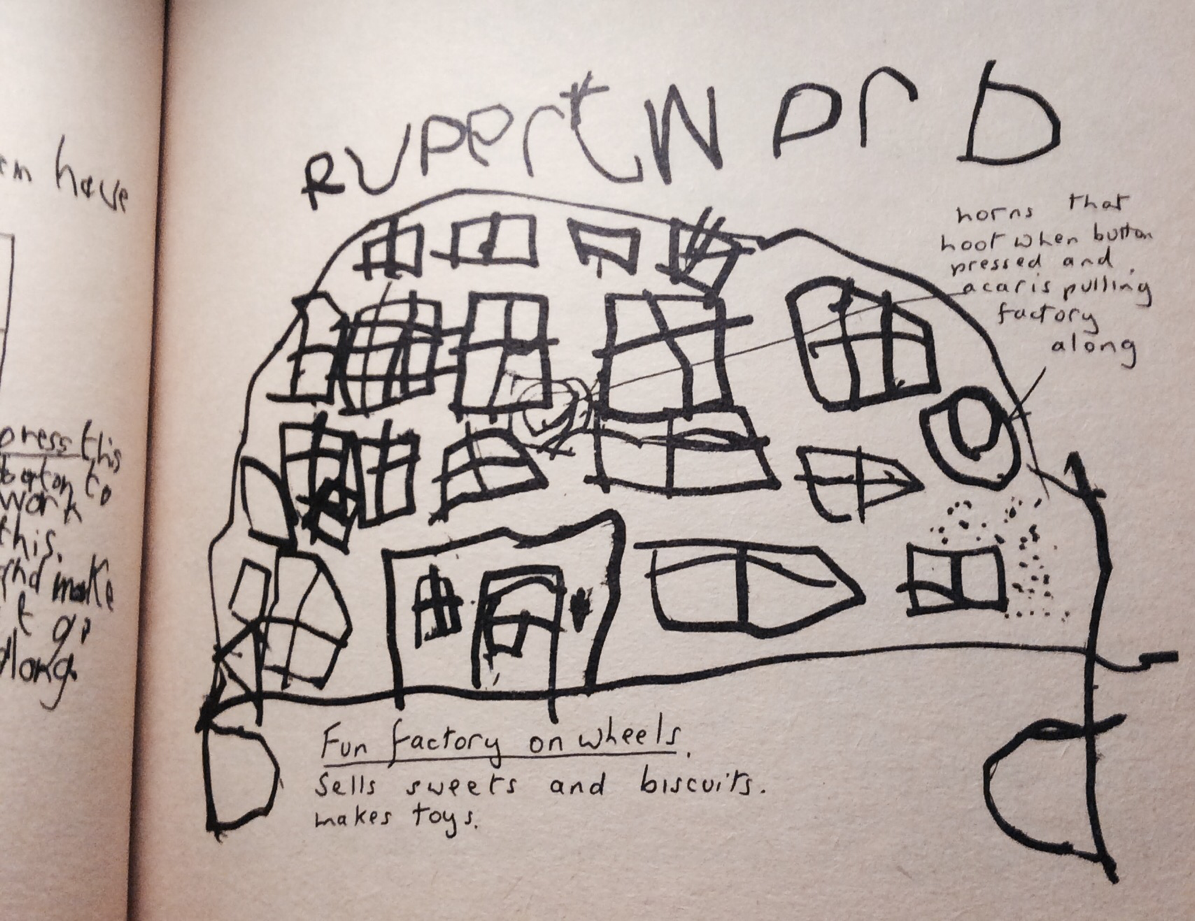 em have
press this
button to
work
this.
and make
t go
along.
RUPert WorD
horns that
hoot when button
pressed and
a car is pulling
factory
along
Fun factory on wheels.
Sells sweets and biscuits.
makes toys.